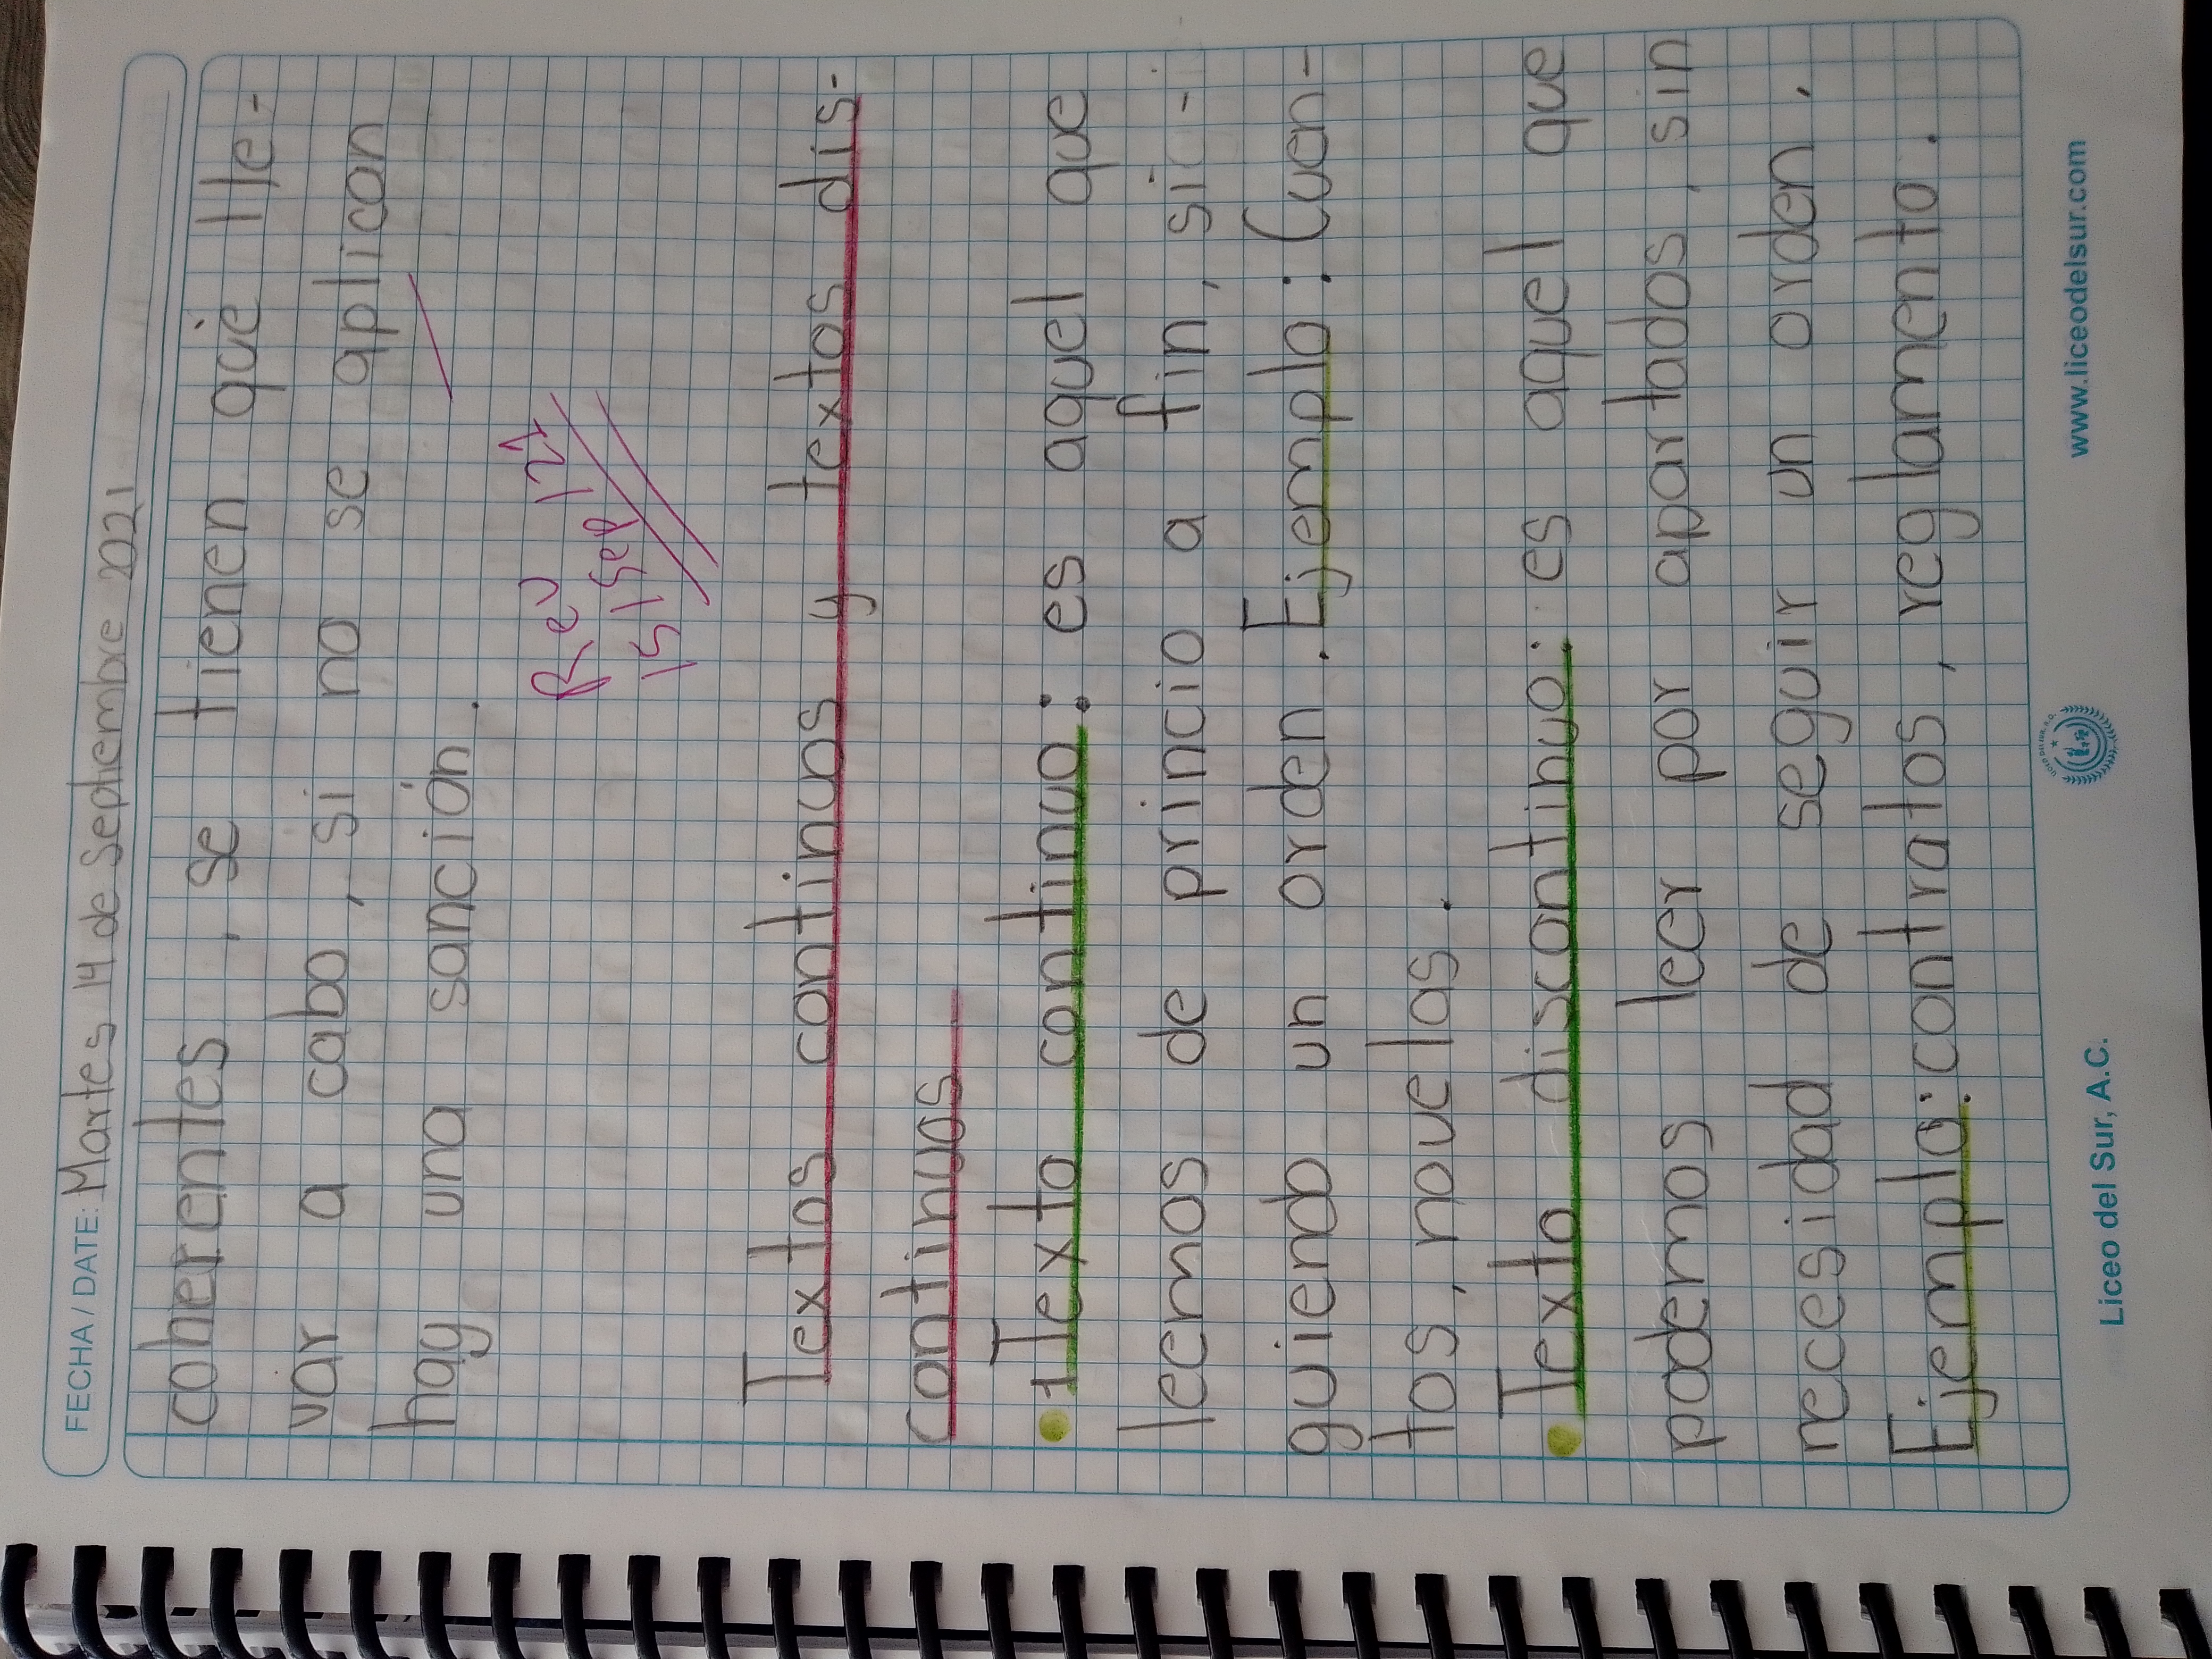 FECHA / DATE: Martes 14 de Sephembre 2021
coherentes, se tienen que lle-
var a cabo, si no se aplican
hay una sanción.
Rev
15 | Sep | 21
Textos continuos y textos dis-
continuos
Texto continuo: es aquel que
leemos de princio a fin, sic-
guiendo un orden. Ejemplo: Cuen-
tos, novelas.
Texto discontinuo: es aquel que
podemos leer por apartados, sin
necesidad de seguir un orden.
Ejemplo: contratos, reglamento.
Liceo del Sur, A.C.
www.liceodelsur.com